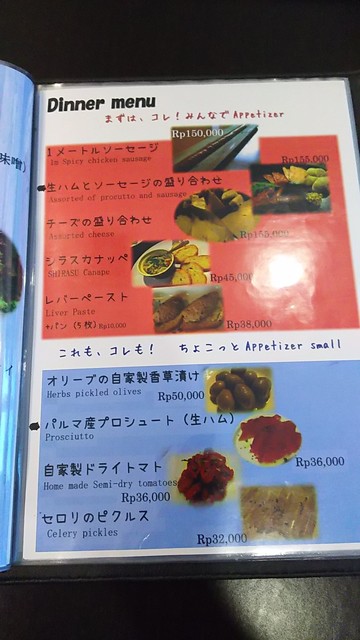 Dinner menu
まずは、コレ！みんなでAppetizer
Rp150,000
1メートルソーセージ
1m Spicy chicken sausage
Rp155,000
生ハムとソーセージの盛り合わせ
Assorted of procutto and sausage
チーズの盛り合わせ
Assorted cheese
Rp155,000
シラスカナッペ
SHIRASU Canape
Rp45,000
レバーペースト
Liver Paste
+パン（5枚）Rp10,000
Rp38,000
これも、コレも！　ちょこっとAppetizer small
オリーブの自家製香草漬け
Herbs pickled olives
Rp50,000
パルマ産プロシュート（生ハム）
Prosciutto
Rp36,000
自家製ドライトマト
Home made Semi-dry tomatoes
Rp36,000
セロリのピクルス
Celery pickles
Rp32,000
味噌）
イ